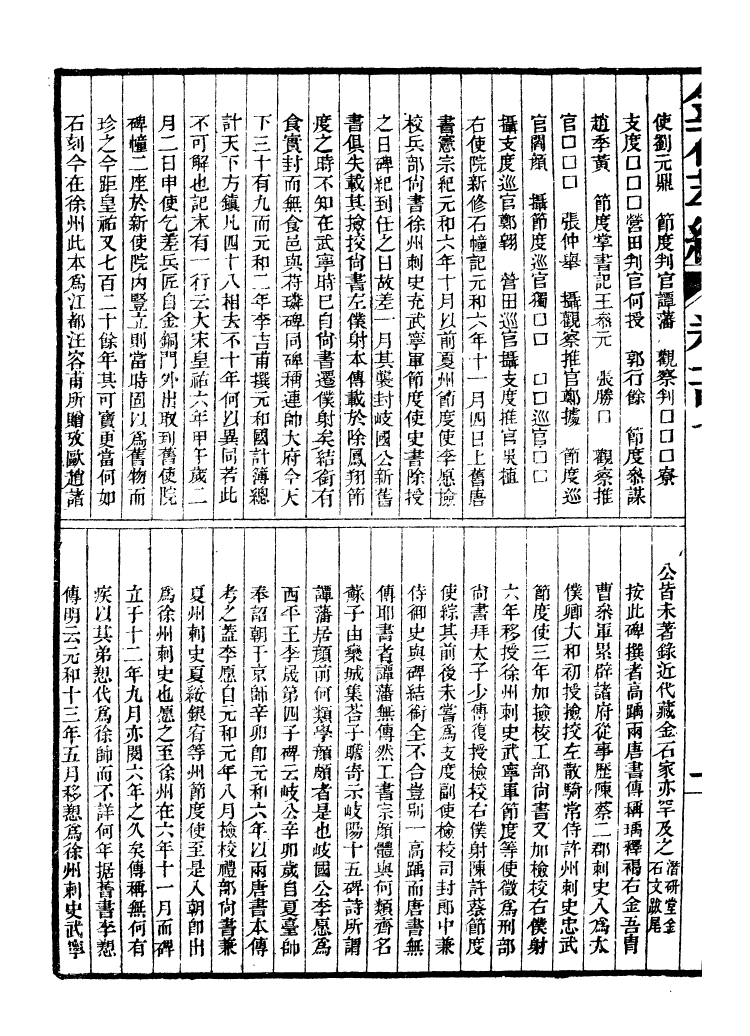 使劉元鼎　節度判官譚藩　觀察判□□□寮
支度□□□營田判官何授　郭行餘　節度叅謀
趙季黃　節度掌書記王叅元　張勝□　觀察推
官□□□　張仲舉　攝觀察推官鄭據　節度巡
官闕頠　攝節度巡官獨□□　□□巡官□□
攝支度巡官鄭翱　營田巡官攝支度推官吳植
右使院新修石幢記元和六年十一月四日上舊唐
書憲宗紀元和六年十月以前夏州節度使李愿檢
校兵部尙書徐州刺史充武寧軍節度使史書除授
之日碑紀到任之日故差一月其襲封岐國公新舊
書俱失載其撿挍尙書左僕射本傳載於除鳳翔節
度之時不知在武寧時已自尙書遷僕射矣結銜有
食實封而無食邑與符璘碑同碑稱連帥大府今天
下三十有九而元和二年李吉甫撰元和國計簿總
計天下方鎭凡四十八相去不十年何以異同若此
不可解也記末有一行云大宋皇祐六年甲午歲二
月二日申使乞差兵匠自金銅門外出取到舊使院
碑幢二座於新使院內豎立則當時固以爲舊物而
珍之今距皇祐又七百二十餘年其可寶更當何如
石刻今在徐州此本爲江都汪容甫所贈攷歐趙諸
公皆未著錄近代藏金石家亦罕及之潛研堂金石文跋尾
按此碑撰者高瑀兩唐書傳稱瑀釋褐右金吾胄
曹叅軍累辟諸府從事歷陳蔡二郡刺史入爲太
僕卿大和初授撿挍左散騎常侍許州刺史忠武
節度使三年加撿校工部尙書又加檢校右僕射
六年移授徐州刺史武寧軍節度等使徵爲刑部
尙書拜太子少傅復授檢校右僕射陳許蔡節度
使綜其前後未嘗爲支度副使檢校司封郎中兼
侍御史與碑結銜全不合豈别一高瑀而唐書無
傳耶書者譚藩無傳然工書宗顏體與何類齊名
蘇子由欒城集荅子瞻寄示岐陽十五碑詩所謂
譚藩居顏前何類學顏頗者是也岐國公李愿爲
西平王李晟第四子碑云岐公辛卯歲自夏臺帥
奉詔朝于京師辛卯卽元和六年以兩唐書本傳
考之蓋李愿自元和元年八月檢校禮部尙書兼
夏州刺史夏綏銀宥等州節度使至是入朝卽出
爲徐州刺史也愿之至徐州在六年十一月而碑
立于十二年九月亦閱六年之久矣傳稱無何有
疾以其弟愬代爲徐帥而不詳何年据舊書李愬
傳明云元和十三年五月移愬爲徐州刺史武寧